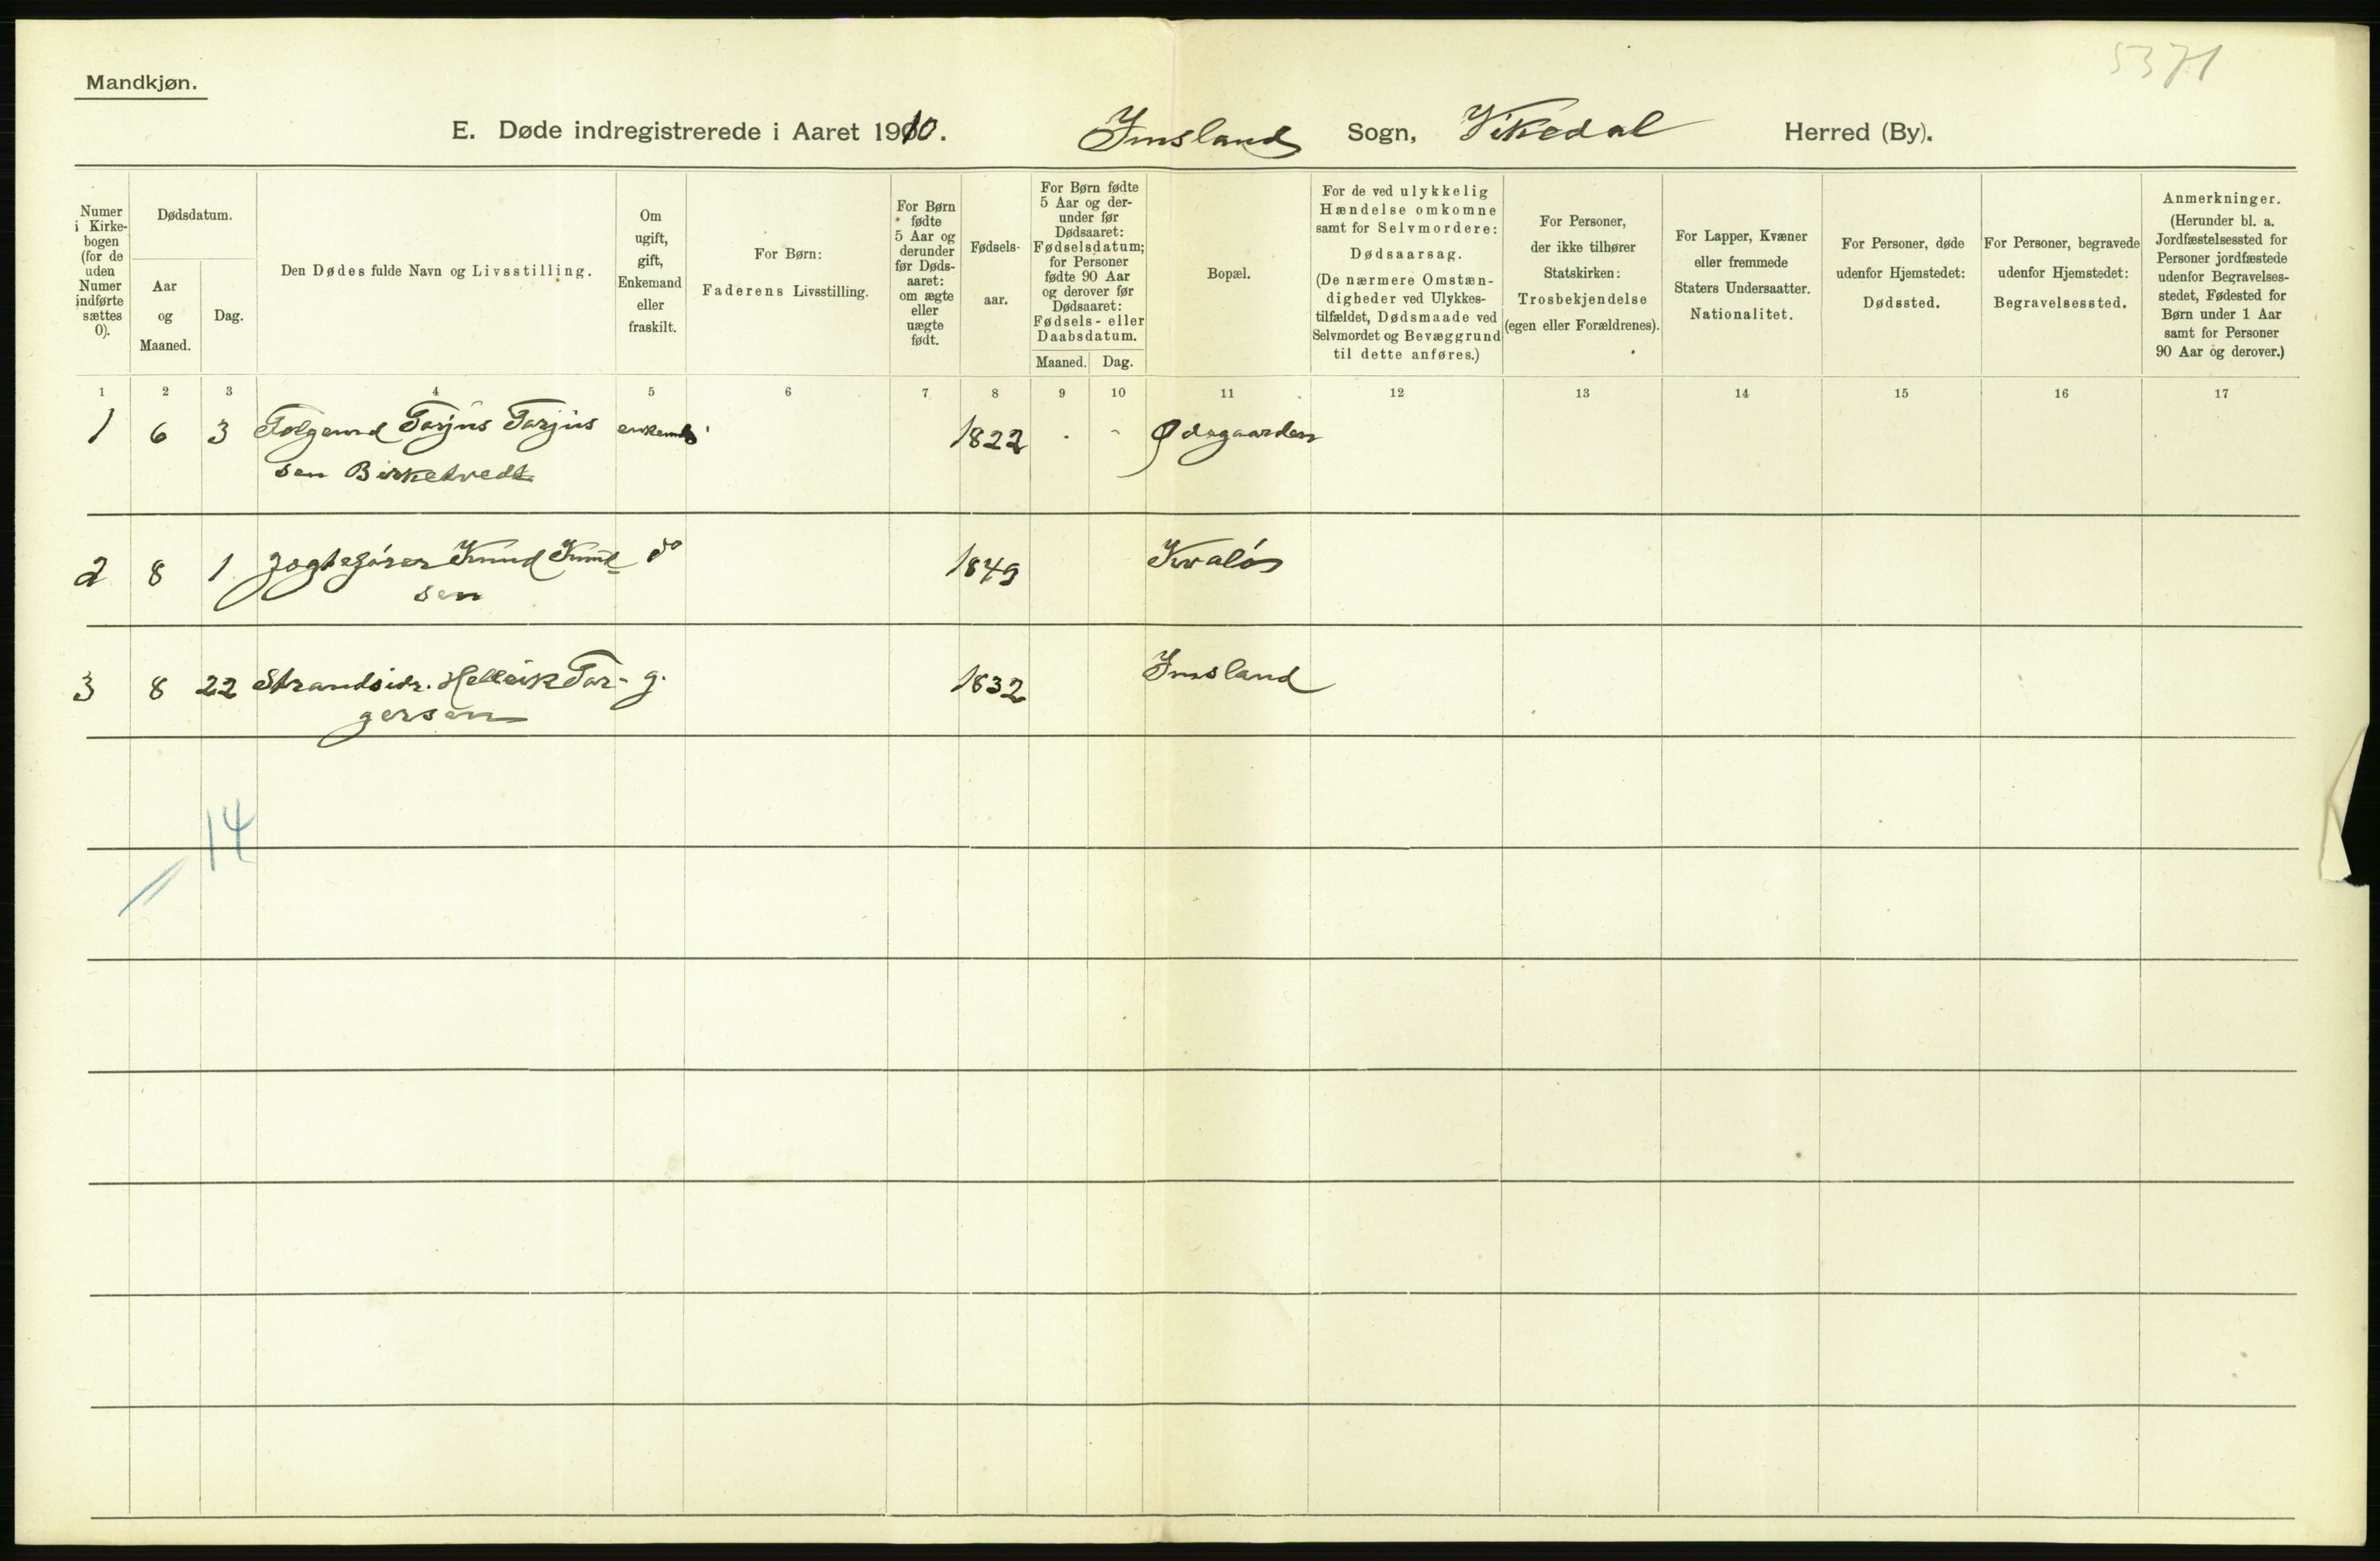 5371
Mandkjøn.
E. Døde indregistrerede i Aaret 1910. Imsland Sogn, Vikedal Herred (By).
Numer i Kirkebogen (for de uden Numer indførte sættes 0).
Dødsdatum.
Aar og Maaned.
Dag.
Den Dødes fulde Navn og Livsstilling.
Om ugift, gift, Enkemand eller fraskilt.
For Børn: Faderens Livsstilling.
For Børn fødte 5 Aar og derunder før Dødsaaret: om ægte eller uægte født.
Fødselsaar.
For Børn fødte 5 Aar og derunder før Dødsaaret: Fødselsdatum; for Personer fødte 90 Aar og derover før Dødsaaret: Fødsels- eller Daabsdatum.
Maaned. Dag.
Bopæl.
For de ved ulykkelig Hændelse omkomne samt for Selvmordere: Dødsaarsag. (De nærmere Omstændigheder ved Ulykkestilfældet, Dødsmaade ved Selvmordet og Bevæggrund til dette anføres.)
For Personer, der ikke tilhører Statskirken: Trosbekjendelse (egen eller Forældrenes).
For Lapper, Kvæner eller fremmede Staters Undersaatter. Nationalitet.
For Personer, døde udenfor Hjemstedet: Dødssted.
For Personer, begravede udenfor Hjemstedet: Begravelsessted.
Anmerkninger. (Herunder bl. a. Jordfæstelsessted for Personer jordfæstede udenfor Begravelsesstedet, Fødested for Børn under 1 Aar samt for Personer 90 Aar og derover.)
1 2 3 4 5 6 7 8 9 10 11 12 13 14 15 16 17
1 6 3 Folgemd Tarjus Tarjus enkemd 1822 Ødegaarden
sen Birketvedt
2 8 1 Jagtefører Knud Knud- do 1849 Kvaløs
sen
3 8 22 Strandsidr. Helleik Tor- g. 1832 Imsland
gersen
14